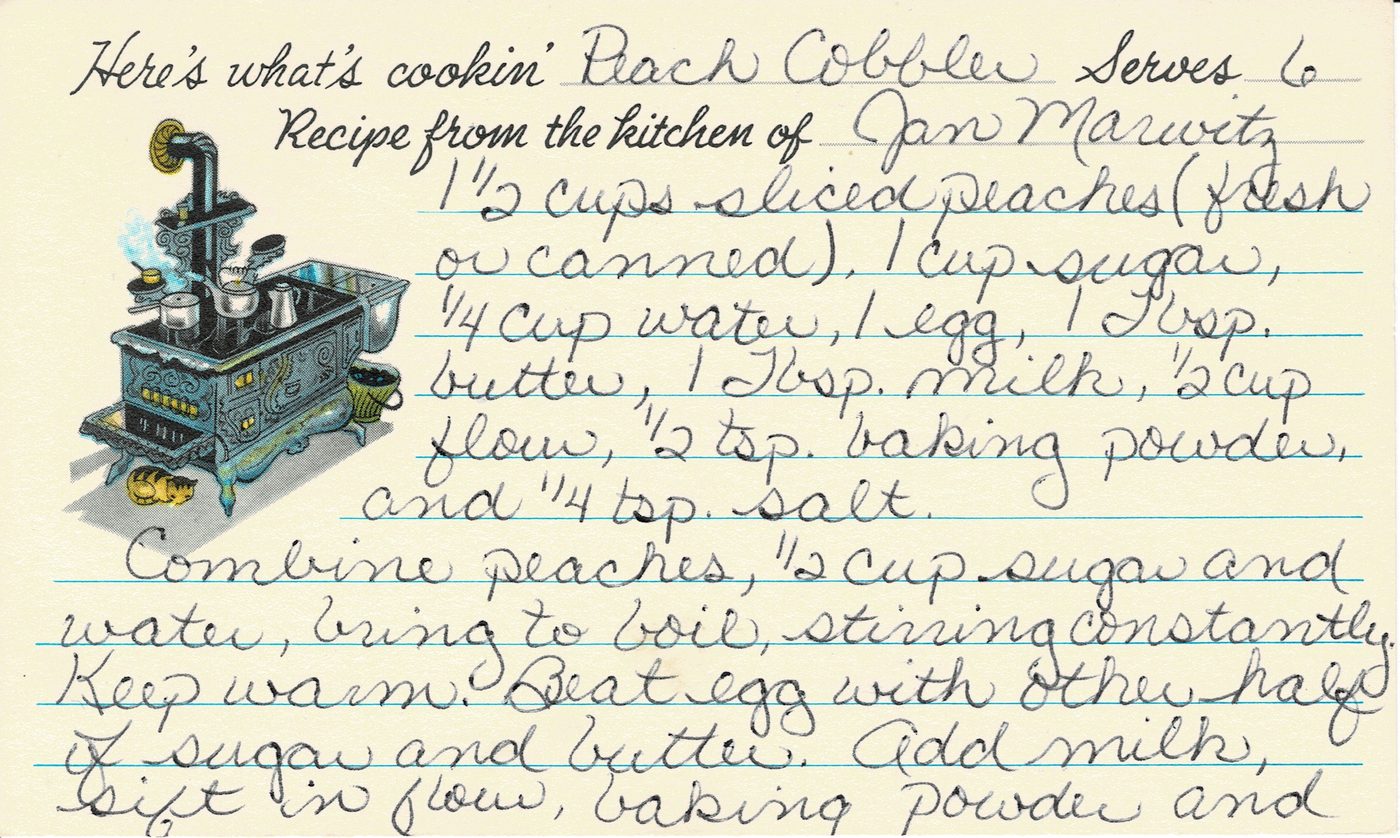 Here's what's cookin' Peach Cobbler Serves 6
Recipe from the kitchen of Jan Marwitz
1 1/2 cups sliced peaches (fresh
or canned), 1 cup sugar,
1/4 cup water, 1 egg, 1 Tbsp.
butter, 1 Tbsp. milk, 1/2 cup
flour, 1/2 tsp. baking powder,
and 1/4 tsp. salt.
Combine peaches, 1/2 cup sugar and
water, bring to boil, stirring constantly.
Keep warm. Beat egg with other half
of sugar and butter. Add milk,
sift in flour, baking powder and